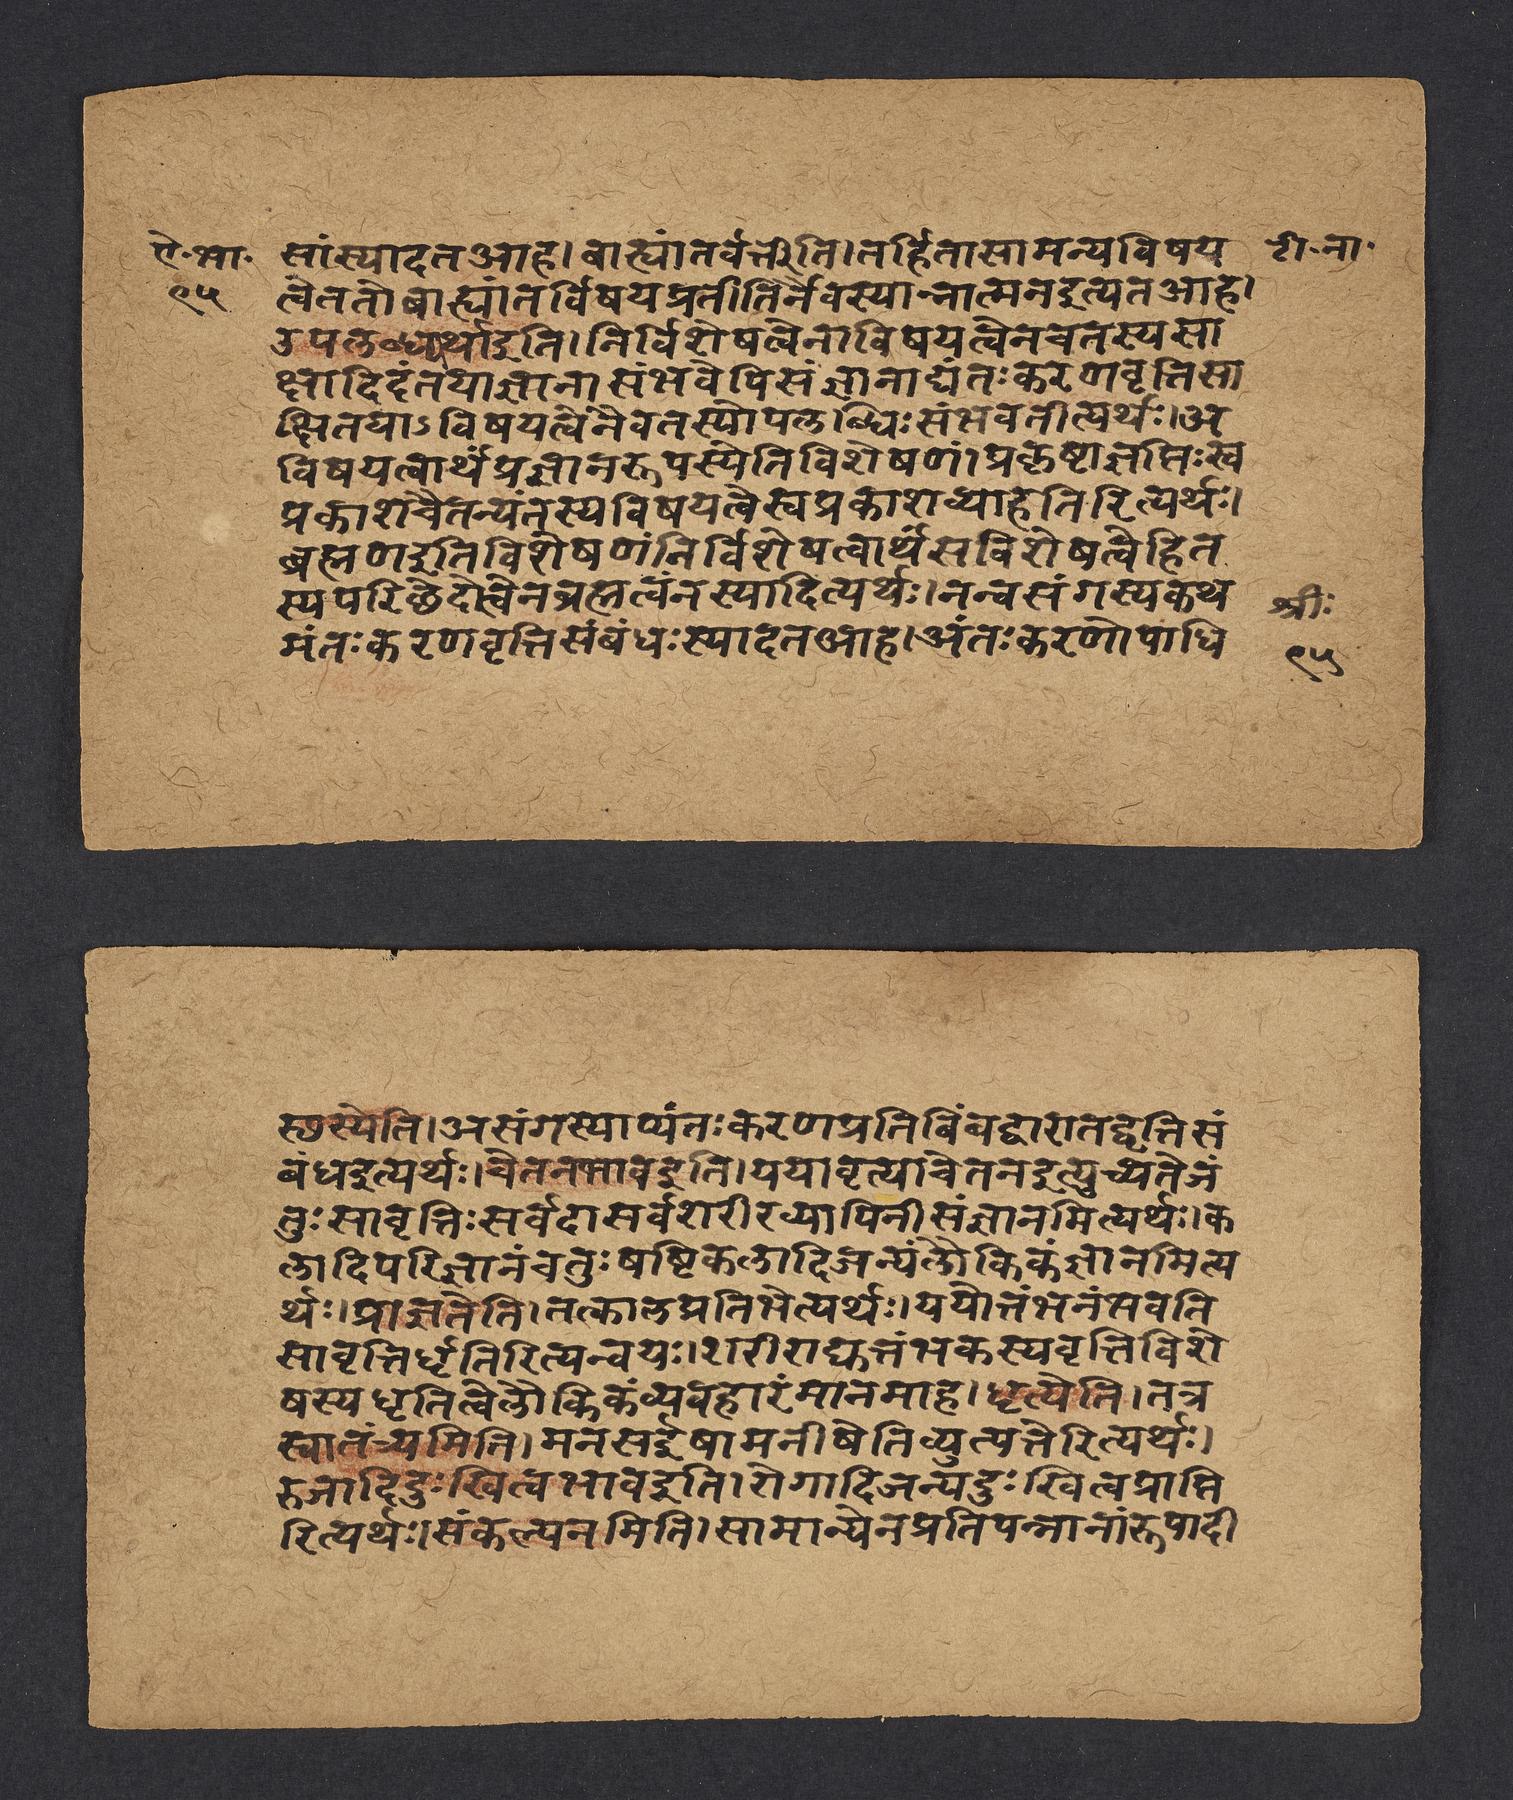 ऐ.भा. सां स्यादत आह। बाह्यांतर्वर्त्तीति। तर्हि तासामन्यविषय टी.ना.
९५ त्वे ततो बाह्यांतर्विषयप्रतीतिर्नैव स्यान्नात्मन इत्यत आह।
उपलब्ध्यर्था इति। निर्विशेषत्वेनाविषयत्वेन च तस्य सा
क्षादिदंतया ज्ञानासंभवेपि संज्ञानाद्यंतःकरणवृत्तिसा
क्षितयाऽविषयत्वेनैव तस्योपलब्धिः संभवतीत्यर्थः। अ
विषयत्वार्थं प्रज्ञानरूपस्येति विशेषणं। प्रकृष्टा ज्ञप्तिः स्व
प्रकाशचैतन्यं तस्य विषयत्वे स्वप्रकाशव्याहतिरित्यर्थः।
ब्रह्मण इति विशेषणं निर्विशेषत्वार्थं सविशेषत्वे हि त
स्य परिछेदोत्वेन ब्रह्मत्वं न स्यादित्यर्थः। नन्वसंगस्य कथ
मंतःकरणवृत्तिसंबंधः स्यादत आह। अंतःकरणोपाधि
श्रीः
९५
स्छस्येति। असंगस्याप्यंतःकरणप्रतिबिंबद्वारा तद्वृत्तिसं
बंध इत्यर्थः। चेतनभाव इति। यया वृत्या चेतन इत्युच्यते जं
तुः सा वृत्तिः सर्वदा सर्वशरीरव्यापिनी संज्ञानमित्यर्थः। क
लादिपरिज्ञानं चतुःषष्टिकलादिजन्यं लौकिकं ज्ञानमित्य
र्थः। प्राज्ञतेति। तत्कालप्रतिभेत्यर्थः। ययोत्तंभनं भवति
सा वृत्तिर्धृतिरित्यन्वयः। शरीराद्युत्तंभकस्य वृत्तिविशे
षस्य धृतित्वे लौकिकं व्यवहारं मानमाह। धृत्येति। तत्र
स्वातंत्र्यमिति। मनस ईषा मनीषेति व्युत्पत्तेरित्यर्थः।
रुजादिदुःखित्वभाव इति। रोगादिजन्यदुःखित्वप्राप्ति
रित्यर्थः। संकल्पनमिति। सामान्येन प्रतिपन्नानां रूपादी